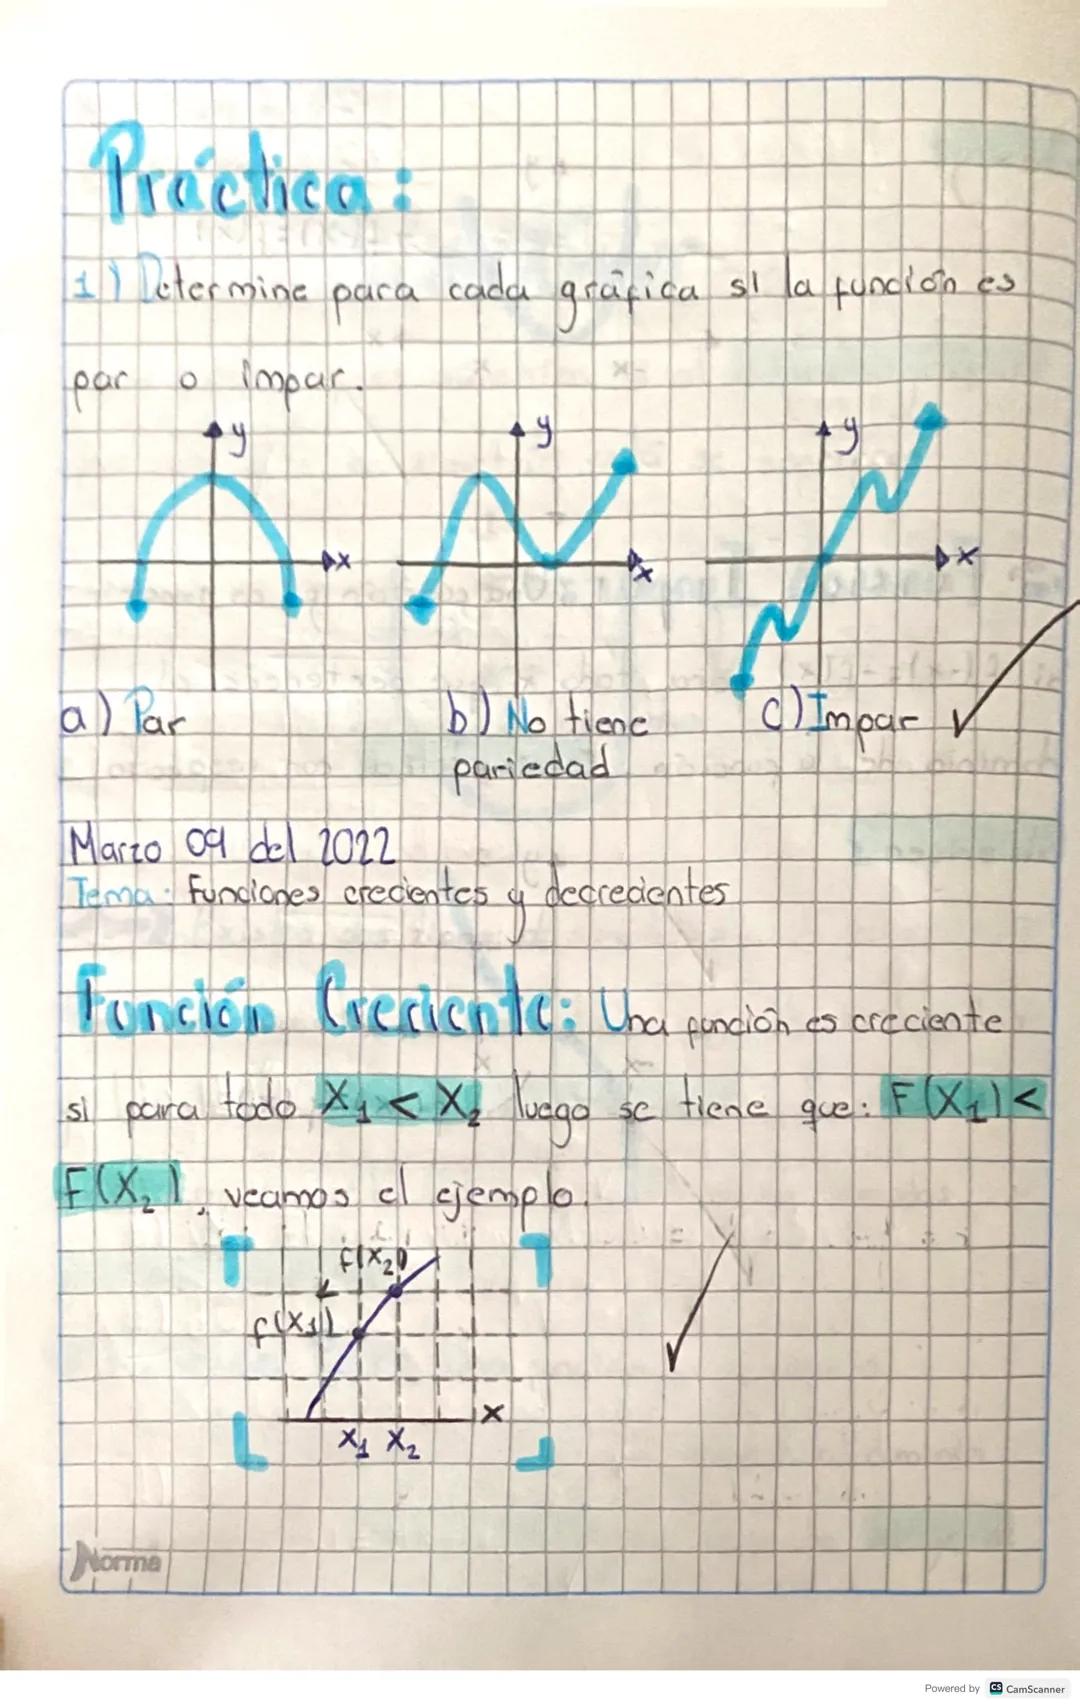 Práctica:
1) Determine para cada gráfica si la función es
par o impar.
y y y
x x x
a) Par b) No tiene c) Impar
pariedad
Marzo 09 del 2022
Tema: Funciones crecientes y decrecientes
Función Creciente: Una función es creciente
si para todo X₁ < X₂ luego se tiene que: F(X₁) <
F(X₂), veamos el ejemplo.
f(X₂)
f(X₁)
x
X₁ X₂
Norma
Powered by CS CamScanner